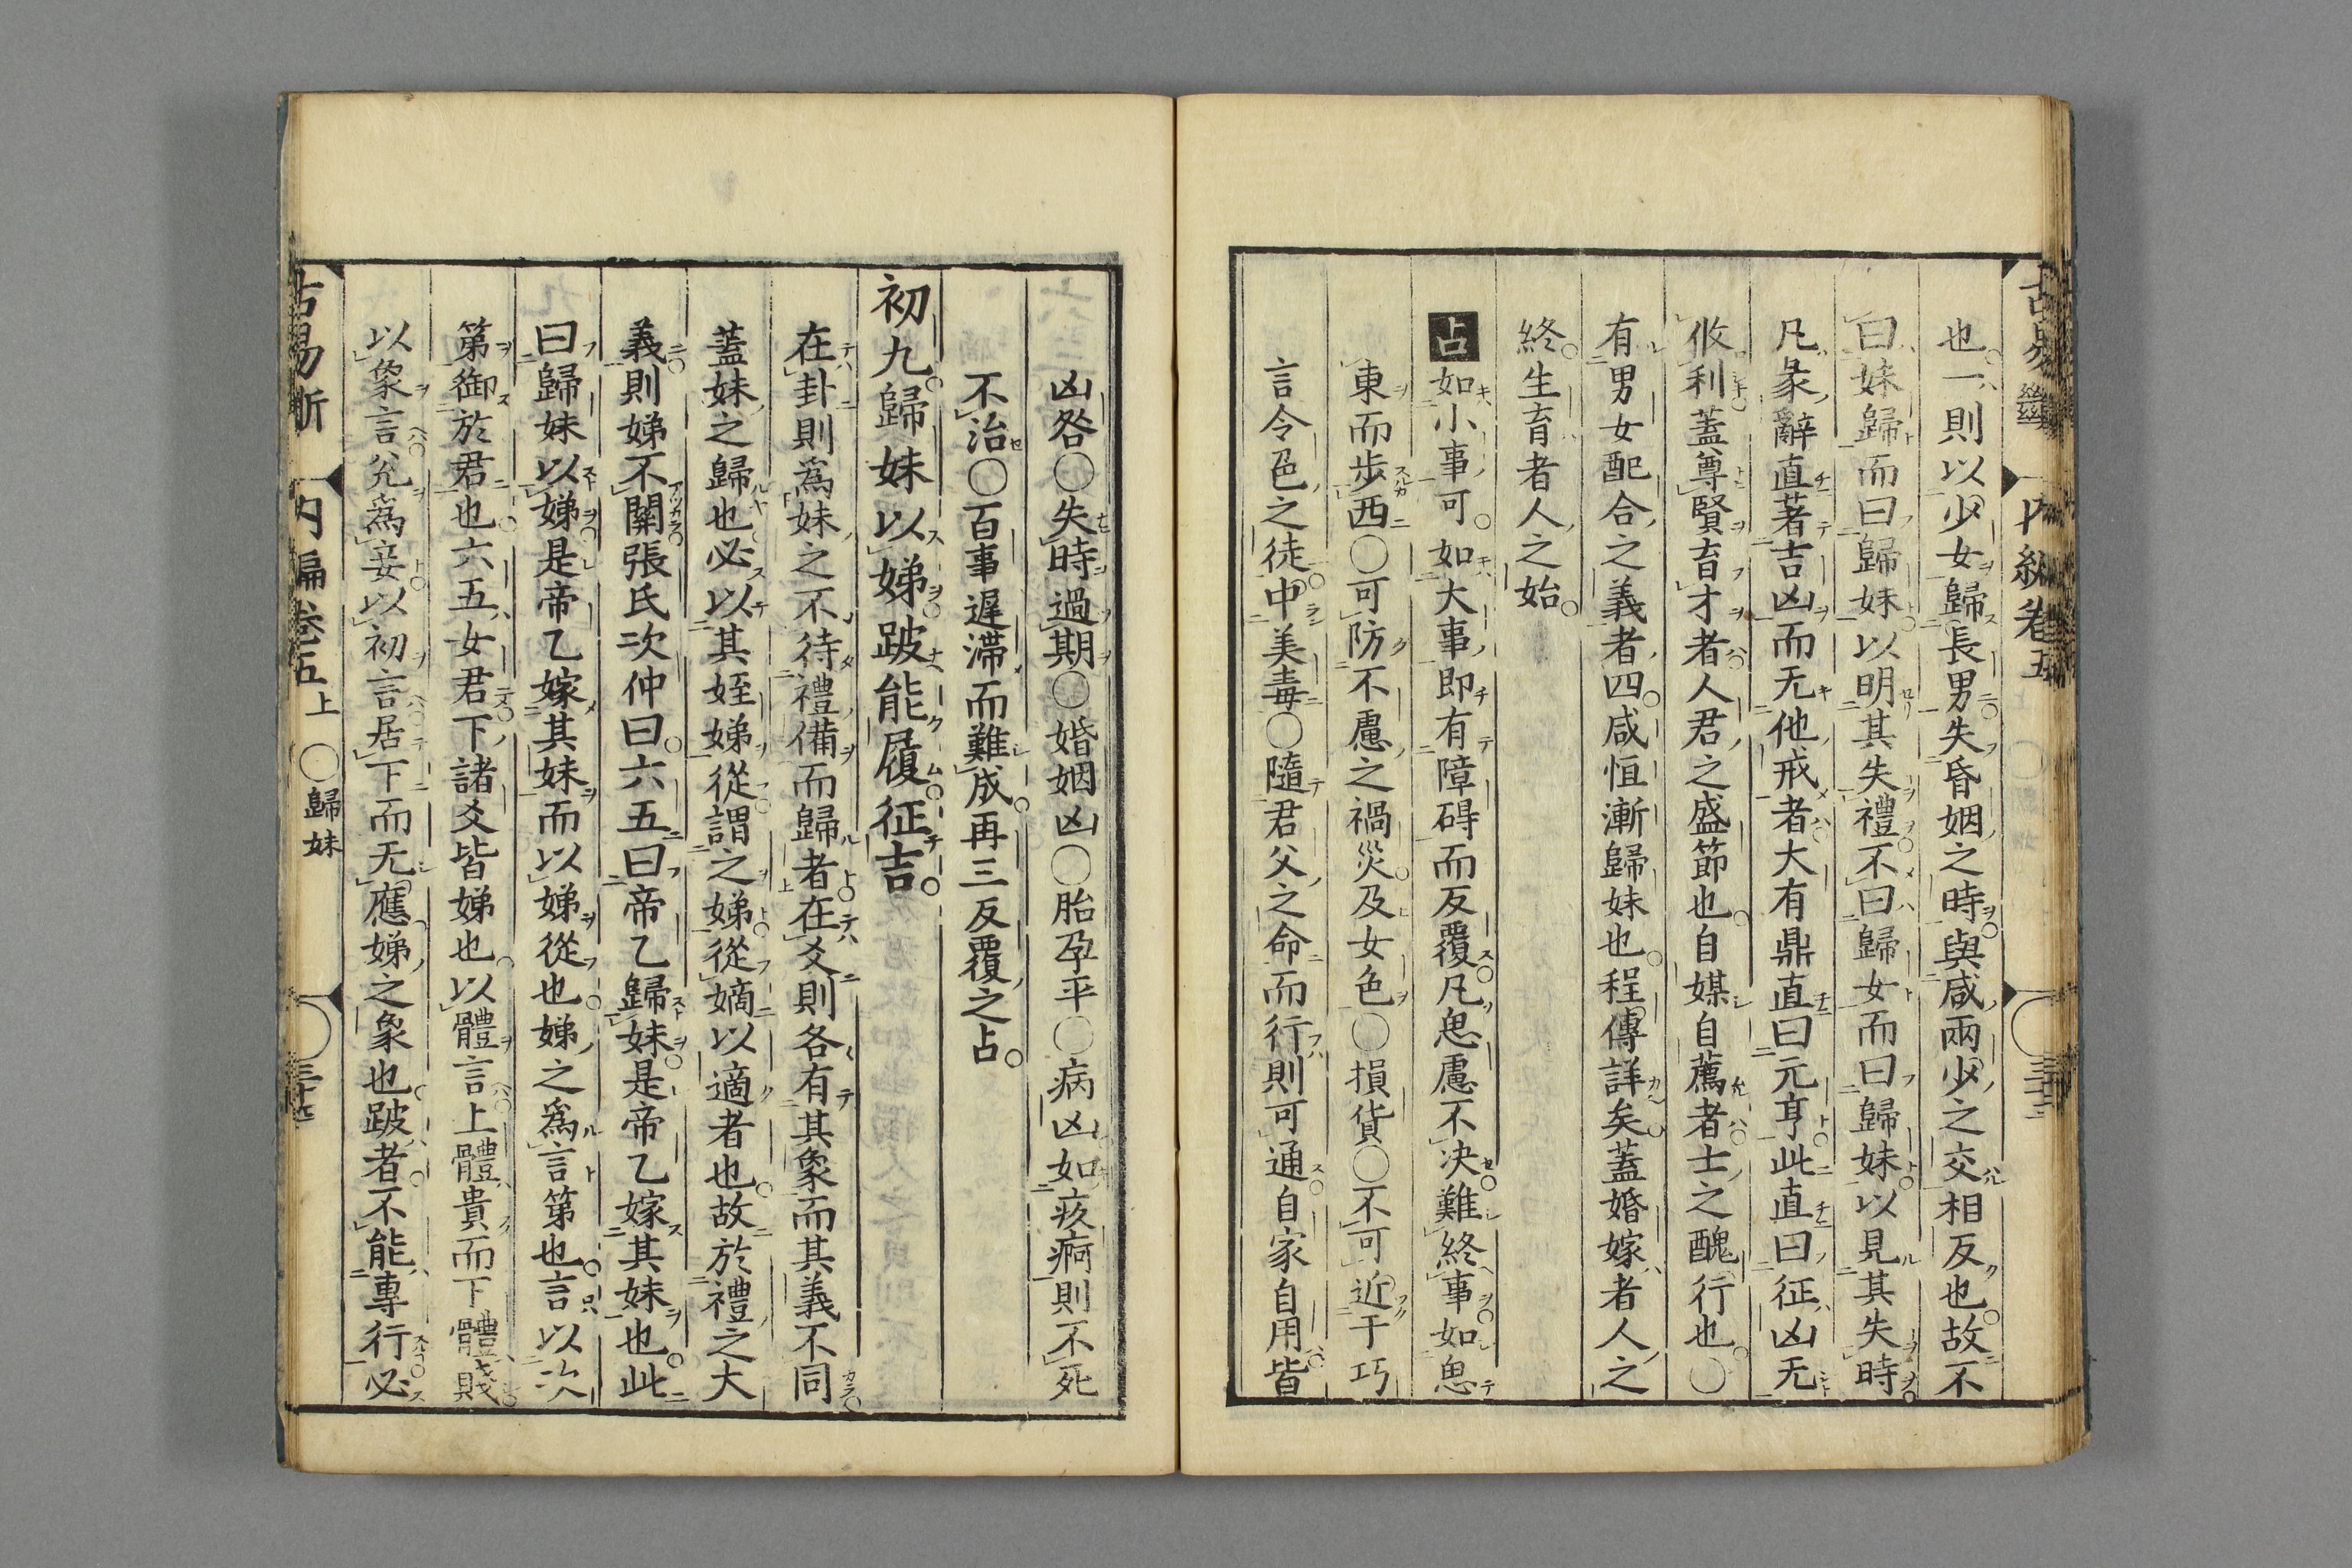 也一則以少女歸長男失昏姻之時與咸兩少之交相反也故不
曰妹歸而曰歸妹以明其失禮不曰歸女而曰歸妹以見其失時
凡彖辭直著吉凶而无他戒者大有鼎直曰元亨此直曰征凶无
攸利蓋尊賢育才者人君之盛節也自媒自薦者士之醜行也〇
有男女配合之義者四咸恒漸歸妹也程傳詳矣蓋婚嫁者人之
終生育者人之始
占如小事可如大事即有障碍而反覆凡思慮不决難終事如思
東而步西〇可防不慮之禍災及女色〇損貨〇不可近于巧
言令色之徒中美毒〇隨君父之命而行則可通自家自用皆
凶咎〇失時過期〇婚姻凶〇胎孕平〇病凶如疚痾則不死
不治〇百事遲滯而難成再三反覆之占
初九歸妹以娣跛能履征吉
在卦則爲妹之不待禮備而歸者在爻則各有其象而其義不同
蓋妹之歸也必以其姪娣從謂之娣從嫡以適者也故於禮之大
義則娣不關張氏次仲曰六五曰帝乙歸妹是帝乙嫁其妹也此
曰歸妹以娣是帝乙嫁其妹而以娣從也娣之爲言第也言以次
第御於君也六五女君下諸爻皆娣也以體言上體貴而下體賤
以象言兌爲妾以初言居下而无應娣之象也跛者不能專行必
古易斷 內編卷五上 〇歸妹